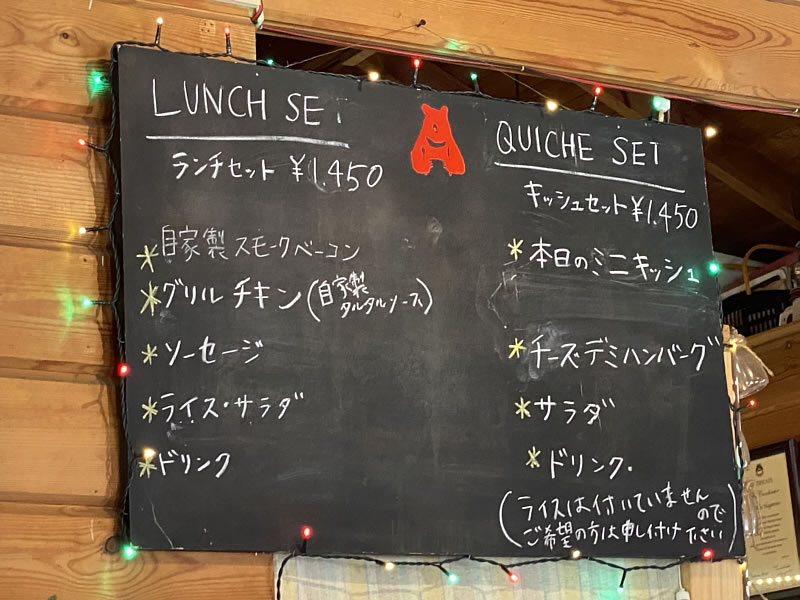 LUNCH SET
ランチセット ¥1,450
*自家製スモークベーコン
*グリルチキン(自家製
タルタルソース)
*ソーセージ
*ライス・サラダ
*ドリンク
QUICHE SET
キッシュセット¥1,450
*本日のミニキッシュ
*チーズデミハンバーグ
*サラダ
*ドリンク.
(ライスは付いていません
ので
ご希望の方は申し付け下さい)